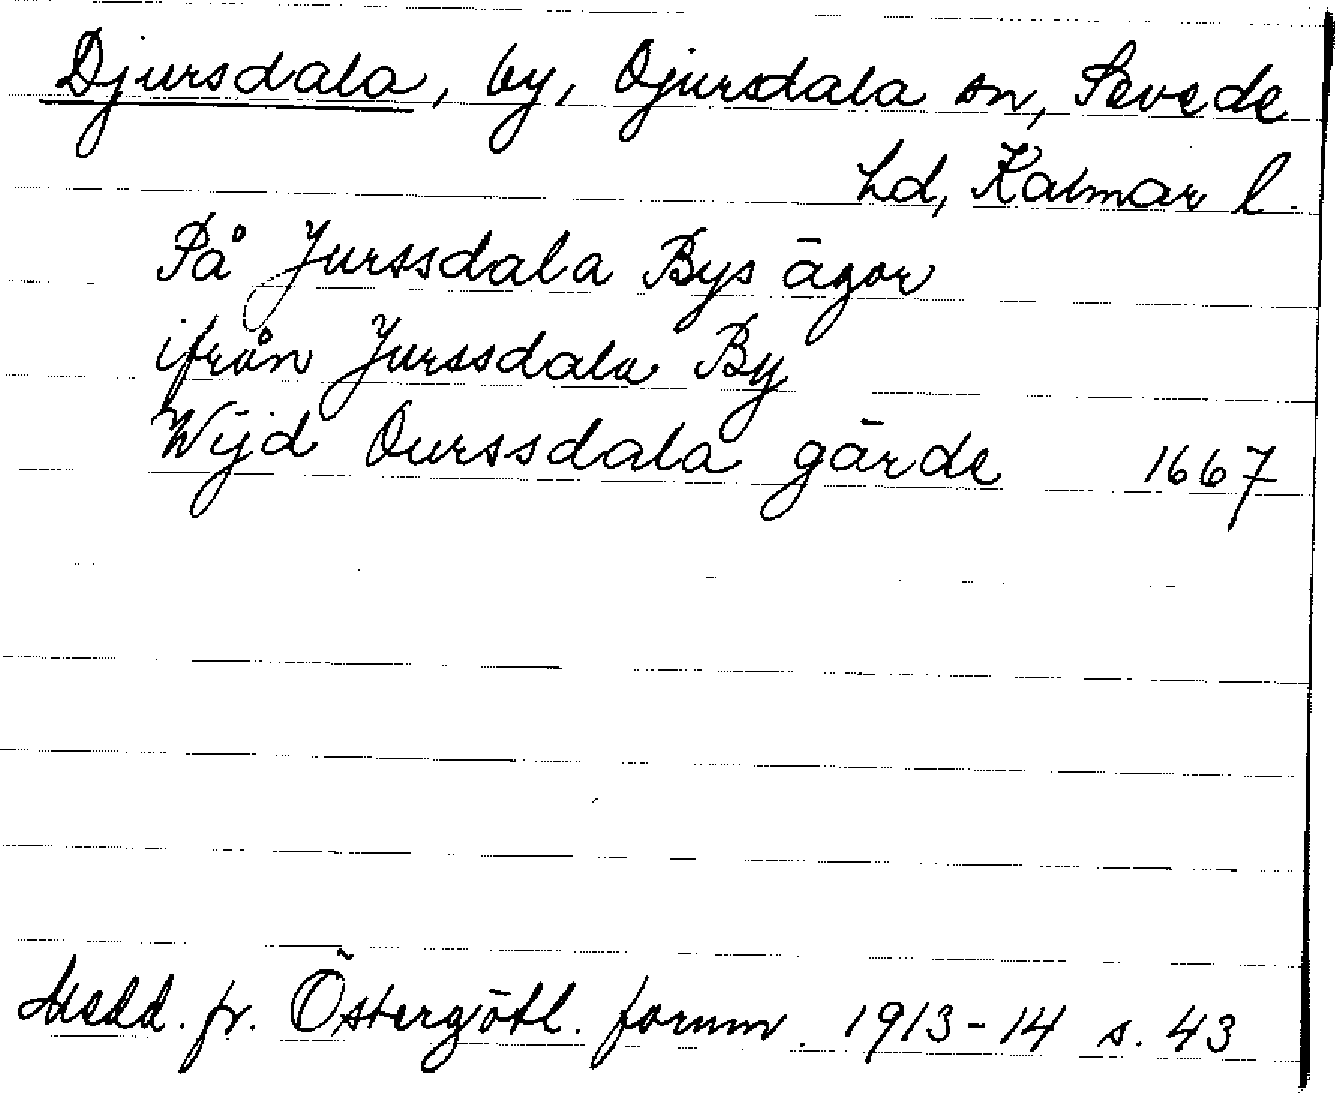 Djursdala, by, Djursdala sn, Sevede
hd, Kalmar l.
På Jurssdala Bys ägor
ifrån Jurssdala By
Wijd Durssdala gärde 1667
Medd. fr. Östergötl. fornm. 1913-14 s. 43